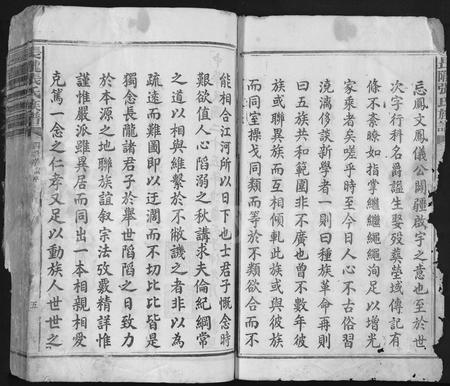 忘鳳文鳳儀公開疆啟宇之意也至於世
次字行科名爵諡生娶歿葬塋域傳記有
條不紊瞭如指掌繼繼繩繩洵足以增光
家乘者矣嗟乎時至今日人心不古俗習
澆漓侈談新學者一則曰種族革命再則
曰五族共和範圍非不廣也曾不數年彼
族或聯異族而互相傾軋此族或與彼族
而同室操戈同類而等於不類欲合而不
能相合江河所以日下也士君子慨念時
艱欲值人心陷溺之秋講求夫倫紀綱常
之道以相與維繫於不敝譏之者非以為
疏遠而難圖即以迂濶而不切比比皆是
獨念長隴諸君子於舉世陷陷之日致力
於本源之地聯族誼敘宗法攷覈精詳惟
謹惟嚴派雖異居而同出一本相親相愛
克篤一念之仁孝又足以動族人世世之
長隴張氏族譜
五
長隴張氏族譜